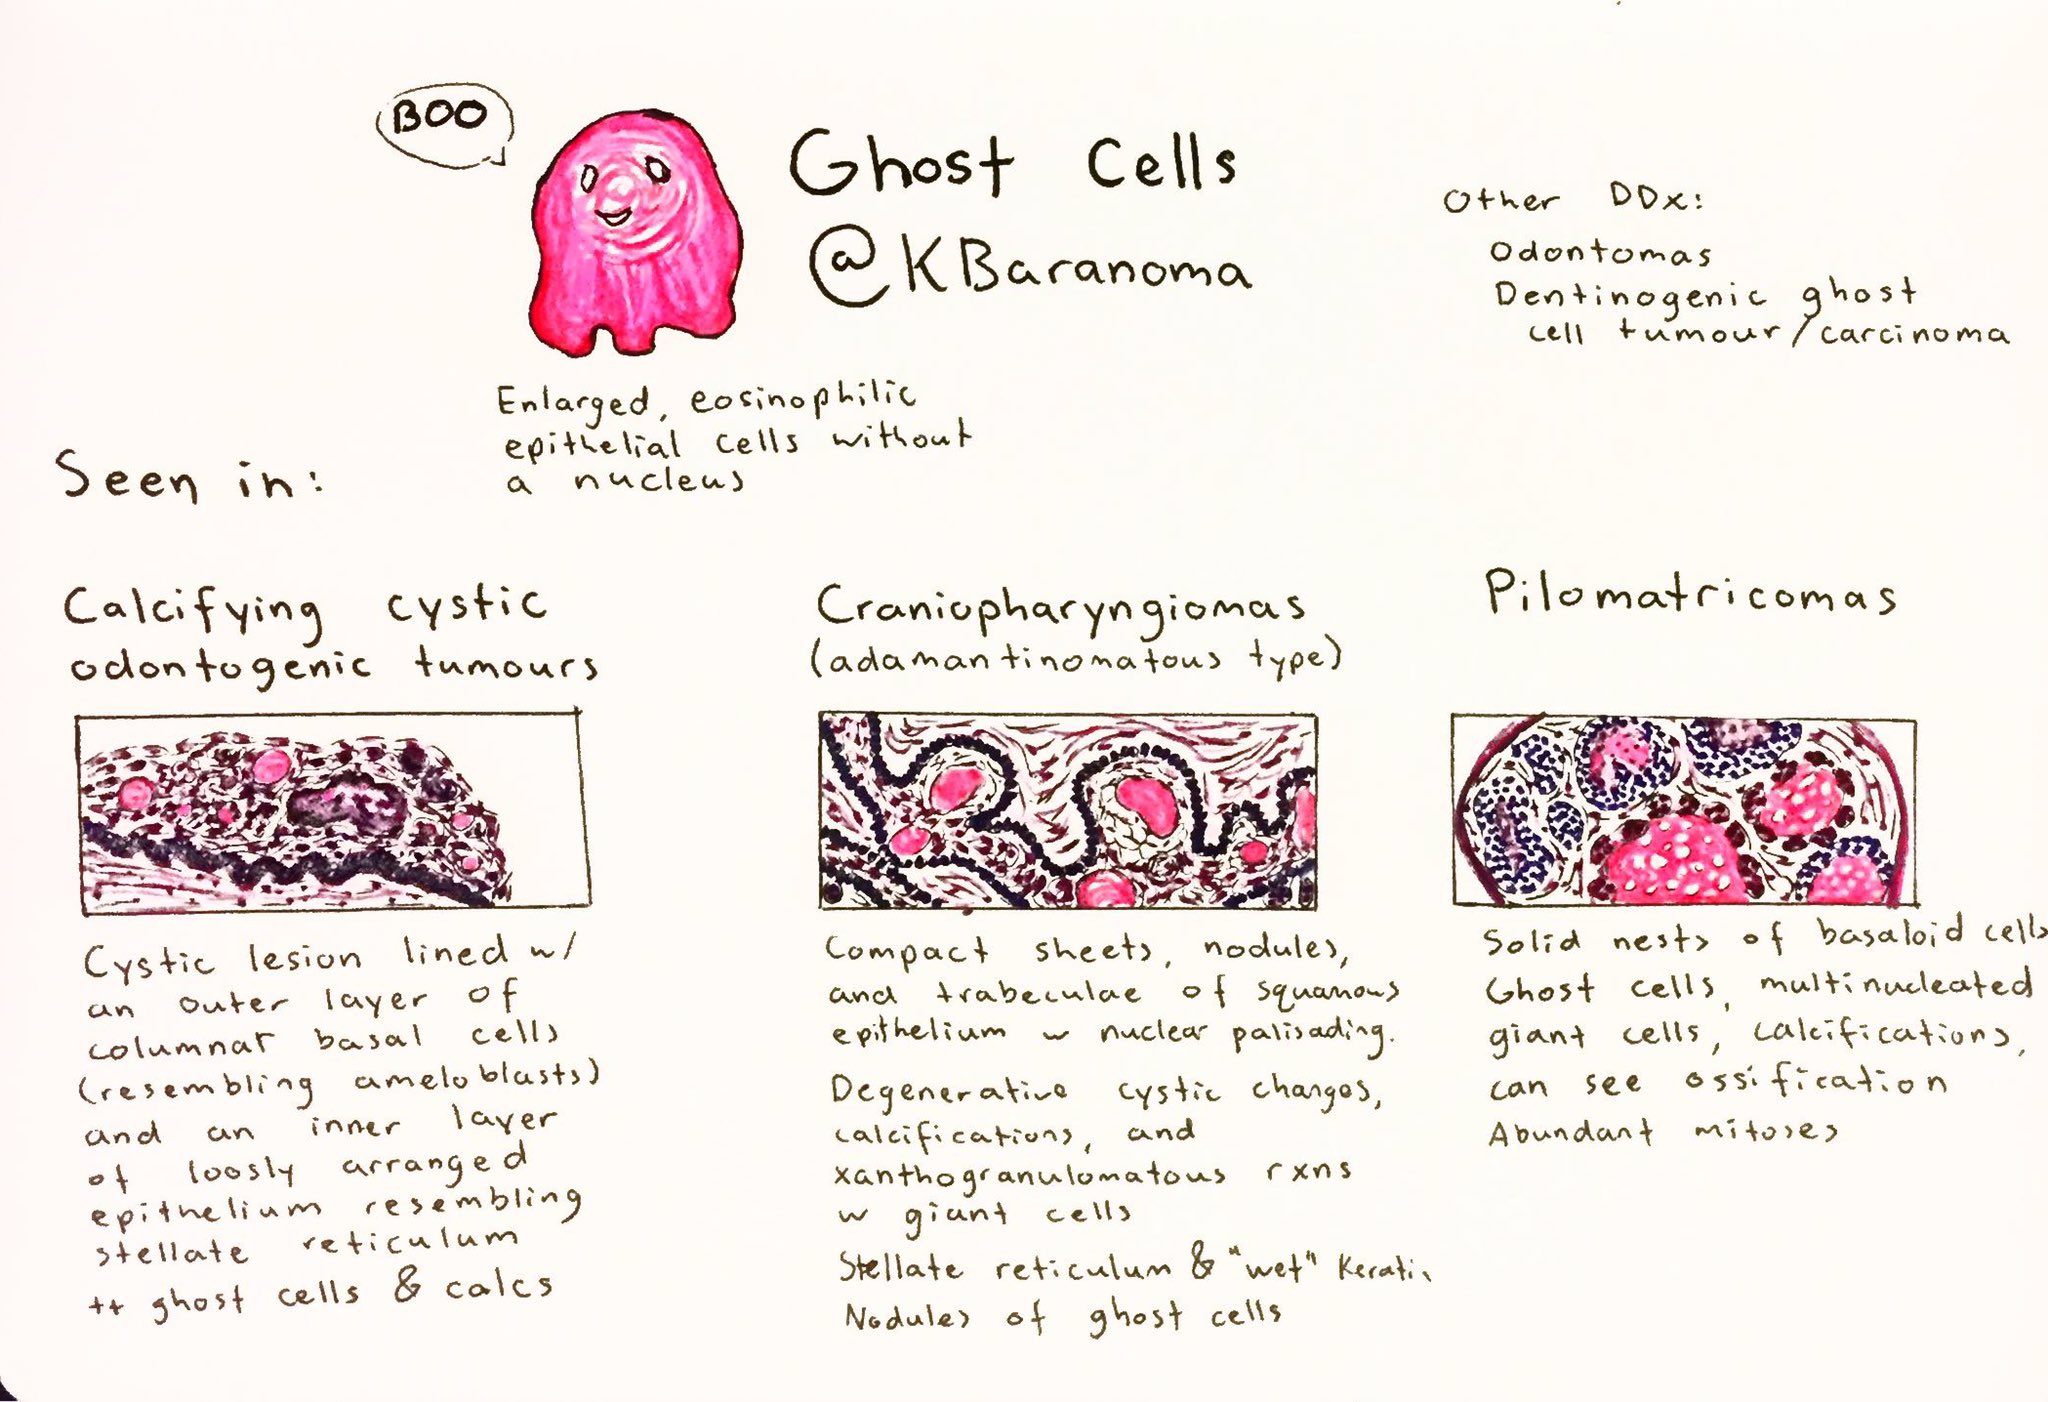 BOO
Ghost Cells
@KBaranoma
Other DDx:
Odontomas
Dentinogenic ghost
cell tumour/carcinoma
Enlarged, eosinophilic
epithelial cells without
a nucleus
Seen in:
Calcifying cystic
odontogenic tumours
Cystic lesion lined w/
an outer layer of
columnar basal cells
(resembling ameloblasts)
and an inner layer
of loosly arranged
epithelium resembling
stellate reticulum
++ ghost cells & calcs
Craniopharyngiomas
(adamantinomatous type)
Compact sheets, nodules,
and trabeculae of squamous
epithelium w nuclear palisading.
Degenerative cystic changes,
calcifications, and
xanthogranulomatous rxns
w giant cells
Stellate reticulum & "wet" Keratin
Nodules of ghost cells
Pilomatricomas
Solid nests of basaloid cells
Ghost cells, multinucleated
giant cells, calcifications,
can see ossification
Abundant mitoses